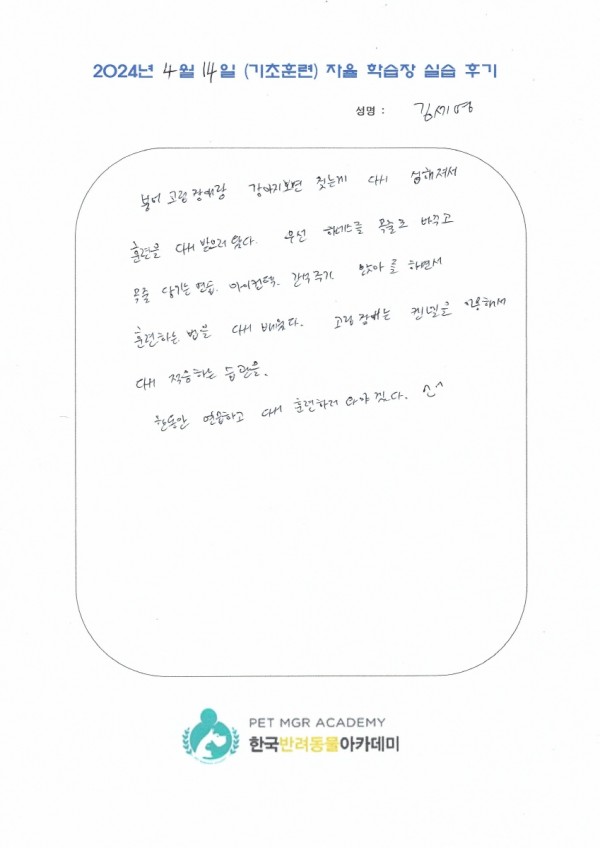 2024년 4월 14일 (기초훈련) 자율 학습장 실습 후기
성명 : 김세영
분리 고립 장애랑 강아지보면 짖는게 다시 심해져서
훈련을 다시 받으러 왔다. 우선 하네스를 목줄로 바꾸고
목줄 당기는 연습, 아이컨택, 간식주기, 앉아를 하면서
훈련하는 법을 다시 배웠다. 고립 장애는 켄넬을 이용해서
다시 적응하는 습관을.
한동안 연습하고 다시 훈련하러 와야겠다. ^^
PET MGR ACADEMY
한국반려동물아카데미